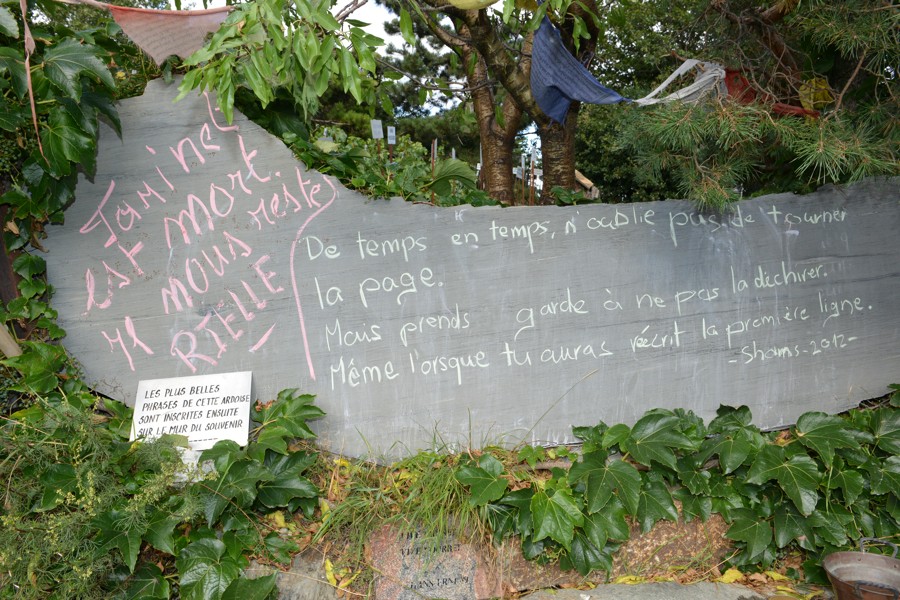 Jaminel
est mort.
il nous reste
RIELLE
De temps en temps, n'oublie pas de tourner
la page.
Mais prends garde à ne pas la déchirer.
Même l'orsque tu auras récrit la première ligne.
-Shams-2012-
LES PLUS BELLES
PHRASES DE CETTE ARDOISE
SONT INSCRITES ENSUITE
SUR LE MUR DU SOUVENIR